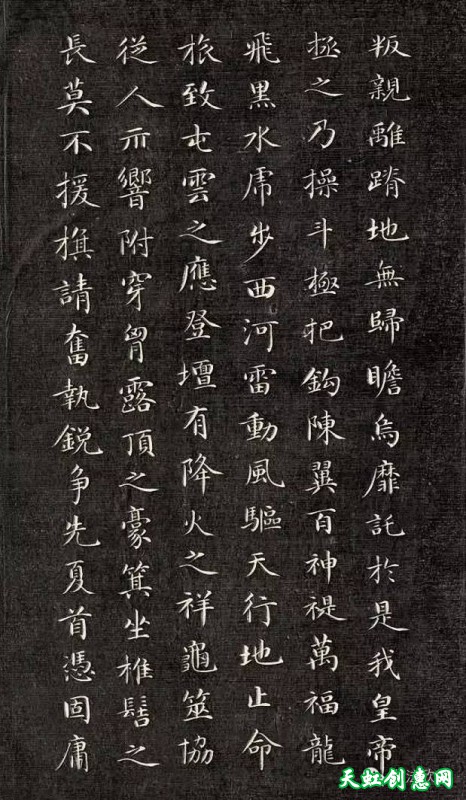 叛親離蹐地無歸瞻烏靡託於是我皇帝
拯之乃操斗極把鈎陳翼百神禔萬福龍
飛黑水虎步西河雷動風驅天行地止命
旅致屯雲之應登壇有降火之祥龜筮協
從人示響附穿胷露頂之豪箕坐椎髻之
長莫不援旗請奮執銳爭先夏首憑固庸
天虹创惠网